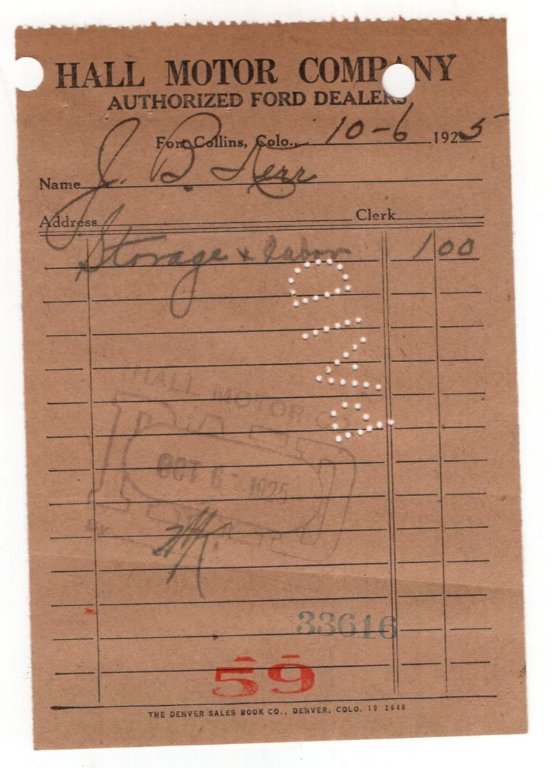 HALL MOTOR COMPANY
AUTHORIZED FORD DEALERS
Fort Collins, Colo., 10-6 1925
Name J. B. Kerr
Address Clerk
Storage & labor 1 00
PAID
HALL MOTOR CO
OCT 6 1925
By
33616
59
THE DENVER SALES BOOK CO., DENVER, COLO. 10 2640